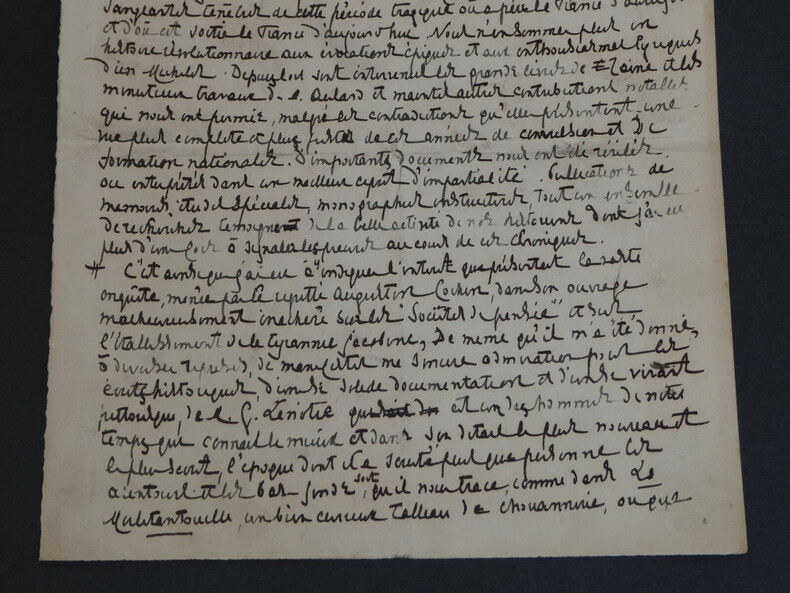 sanglantes ténèbres de cette période tragique où a péri la France d'autrefois
et d'où est sortie la France d'aujourd'hui. Nous n'en sommes plus en
histoire révolutionnaire aux évocations épiques et aux enthousiasmes lyriques
d'un Michelet. Depuis lors sont intervenus les grands livres de Taine et les
minutieux travaux de M. Aulard et maintes autres contributions notables
qui nous ont permis, malgré les contradictions qu'elles présentent, une
vue plus complète et plus juste de ces années de convulsion et de
formation nationales. D'importants documents nous ont été révélés
ou interprétés dans un meilleur esprit d'impartialité. Publications de
mémoires, études spéciales, monographies instructives, tout un ensemble
de recherches témoignent de la belle activité de nos historiens dont j'ai eu
plus d'une fois à signaler les preuves au cours de ces chroniques.
# C'est ainsi que j'ai eu à indiquer l'intérêt que présentait la vaste
enquête, menée par le regretté Augustin Cochin, dans son ouvrage
malheureusement inachevé sur les "Sociétés de pensée" et sur
l'établissement de la tyrannie jacobine. De même qu'il m'a été donné,
à diverses reprises, de manifester ma sincère admiration pour les
écrits historiques, d'une si solide documentation et d'un si vivant
pittoresque, de M. G. Lenotre qui est un des hommes de notre
temps qui connait le mieux et dans son détail le plus nouveau et
le plus secret, l'époque dont il a scruté plus que personne les
alentours et les bas-fonds, soit qu'il nous trace, comme dans La
Mirlitantouille, un bien curieux tableau de chouannerie, ou que